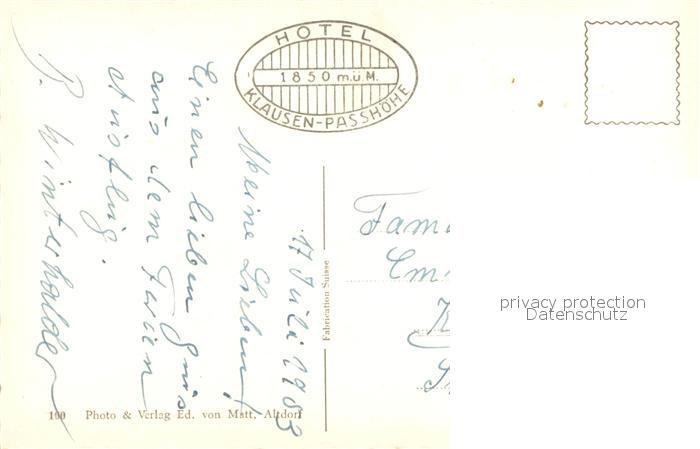 HOTEL
1850 m.ü.M.
KLAUSEN-PASSHÖHE
17 Juli 1953
Meine Lieben!
Einen lieben Grus
aus dem Ferien
Ausflug.
B. Winterhalder
Fabrication Suisse
Fam
Em
privacy protection
Datenschutz
100 Photo & Verlag Ed. von Matt, Altdorf